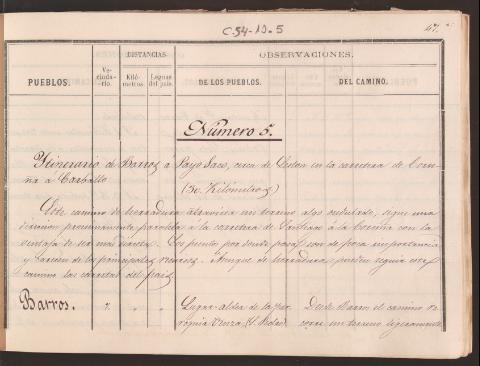 C-54-19-5
47.
PUEBLOS.
Ve-
cinda-
rio.
DISTANCIAS.
Kiló-
metros.
Leguas
del país.
OBSERVACIONES.
DE LOS PUEBLOS.
DEL CAMINO.
Número 5.
Itinerario de Barros a Payo Saco, cerca de en la carretera de Coru-
ña á Carballo
(30 Kilómetros)
Este camino de herradura atraviesa un terreno algo ondulado, sigue una
direccion proximamente paralela á la carretera de Santiago á la Coruña con la
ventaja de ser mas Los puntos por donde pasa son de poca importancia
y carecen de los principales recursos. Aunque de herradura, pueden seguir este
camino las carretas del país
Barros.
Lugar aldea de la par-
roquia
Desde Barros el camino re-
corre un terreno ligeramente